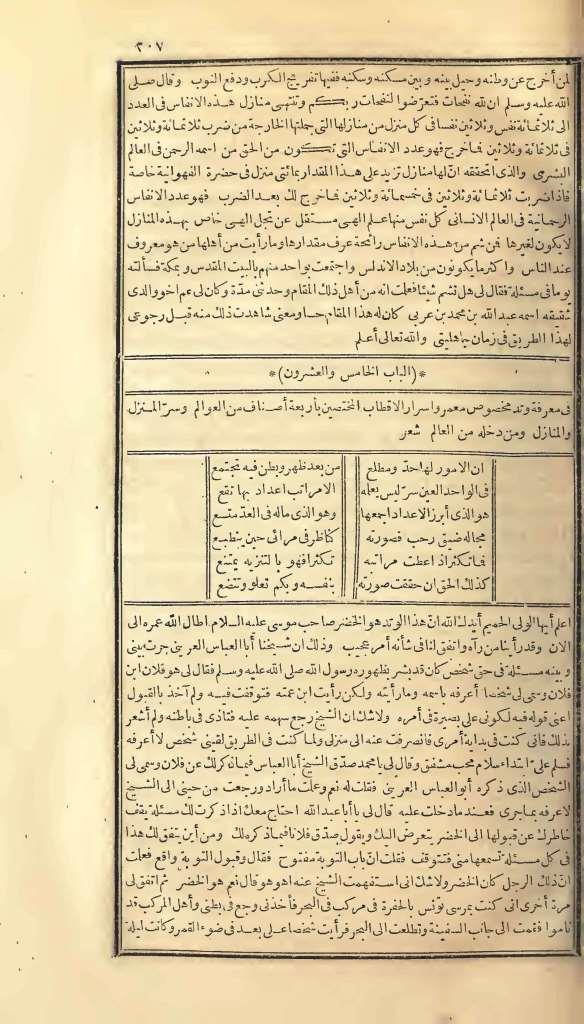 ٢٠٧
لمن أخرج عن وطنه وحيل بينه وبين مسكنه وسكنه ففيها تفريج الكرب ودفع النوب وقال صلى
الله عليه وسلم ان لله نفحات فتعرضوا لنفحات ربكم وتنتهى منازل هذه الانفاس فى العدد
الى ثلاثمائة نفس وثلاثين نفسا فى كل منزل من منازلها التى جملتها الخارجة من ضرب ثلثمائة وثلاثين
فى ثلثمائة وثلاثين فما خرج فهو عدد الانفاس التى تكون من الحق من اسمه الرحمن فى العالم
البشرى والذى اتحققه ان لها منازل تزيد على هذا المقدار بمائتى منزل فى حضرة الفهوانية خاصة
فاذا ضربت ثلثمائة وثلاثين فى خمسمائة وثلاثين فما خرج لك بعد الضرب فهو عدد الانفاس
الرحمانية فى العالم الانسانى كل نفس منها علم الهى مستقل عن تجل الهى خاص بهذه المنازل
لا يكون لغيرها فمن شم من هذه الانفاس رائحة عرف مقدارها وما رأيت من أهلها من هو معروف
عند الناس واكثر ما يكونون من بلاد الاندلس واجتمعت بواحد منهم بالبيت المقدس وبمكة فسألته
يوما فى مسئلة فقال لى هل تشم شيئا فعلمت انه من أهل ذلك المقام وخدمنى مدّة وكان لى عم اخو والدى
شقيقه اسمه عبد الله بن محمد بن عربى كان له هذا المقام حسا ومعنى شاهدت ذلك منه قبل رجوعى
لهذا الطريق فى زمان جاهليتى والله تعالى أعلم
*(الباب الخامس والعشرون)*
فى معرفة وتد مخصوص معمر واسرار الاقطاب المختصين بأربعة أصناف من العوالم وسرّ المنزل
والمنازل ومن دخله من العالم شعر
ان الامور لها حدّ ومطلع من بعد ظهر وبطن فيه تجتمع
فى الواحد العين سرّ ليس يعلمه الا مراتب اعداد بها تقع
هو الذى أبرز الاعداد اجمعها وهو الذى ماله فى العدّ متسع
مجاله ضيق رحب فصورته كناظر فى مرائى حين ينطبع
فما تكثر اذ اعطت مراتبه تكثرا فهو بالتنزيه يمتنع
كذلك الحق ان حققت صورته بنفسه وبكم تعلو وتتضع
اعلم أيها الولى الحميم أيدك الله ان هذا الوتد هو الخضر صاحب موسى عليه السلام اطال الله عمره الى
الان وقد رأينا من رآه واتفق لنا فى شأنه أمر عجيب وذلك ان شيخنا أبا العباس العرينى جرت بينى
وبينه مسئلة فى حق شخص كان قد بشر بظهوره رسول الله صلى الله عليه وسلم فقال لى هو فلان ابن
فلان وسمى لى شخصا أعرفه باسمه وما رأيته ولكن رأيت ابن عمته فتوقفت فيه ولم آخذ بالقبول
اعنى قوله فيه لكونى على بصيرة فى أمره ولا شك ان الشيخ رجع سهمه عليه فتأذى فى باطنه ولم أشعر
بذلك فانى كنت فى بداية أمرى فانصرفت عنه الى منزلى ولما كنت فى الطريق لقينى شخص لا أعرفه
فسلم علىّ ابتداء سلام محب مشفق وقال لى يا محمد صدّق الشيخ أبا العباس فيما ذكر لك عن فلان وسمى لى
الشخص الذى ذكره أبو العباس العرينى فقلت له نعم وعلمت ما أراد ورجعت من حينى الى الشيخ
لاعرفه بما جرى فعند ما دخلت عليه قال لى يا أبا عبد الله احتاج معك اذا ذكرت لك مسئلة يقف
خاطرك عن قبولها الى الخضر يتعرض اليك ويقول صدّق فلانا فيما ذكره لك ومن أين يتفق لك هذا
فى كل مسئلة تسمعها منى فتتوقف فقلت انّ باب التوبة مفتوح فقال وقبول التوبة واقع فعلمت
انّ ذلك الرجل كان الخضر ولا شك انى استفهمت الشيخ عنه اهو هو قال نعم هو الخضر ثم اتفق لى
مرة أخرى انى كنت بمرسى تونس بالحفرة فى مركب فى البحر فأخذنى وجع فى بطنى وأهل المركب قد
ناموا فقمت الى جانب السفينة وتطلعت الى البحر فرأيت شخصا على بعد فى ضوء القمر وكانت ليلة